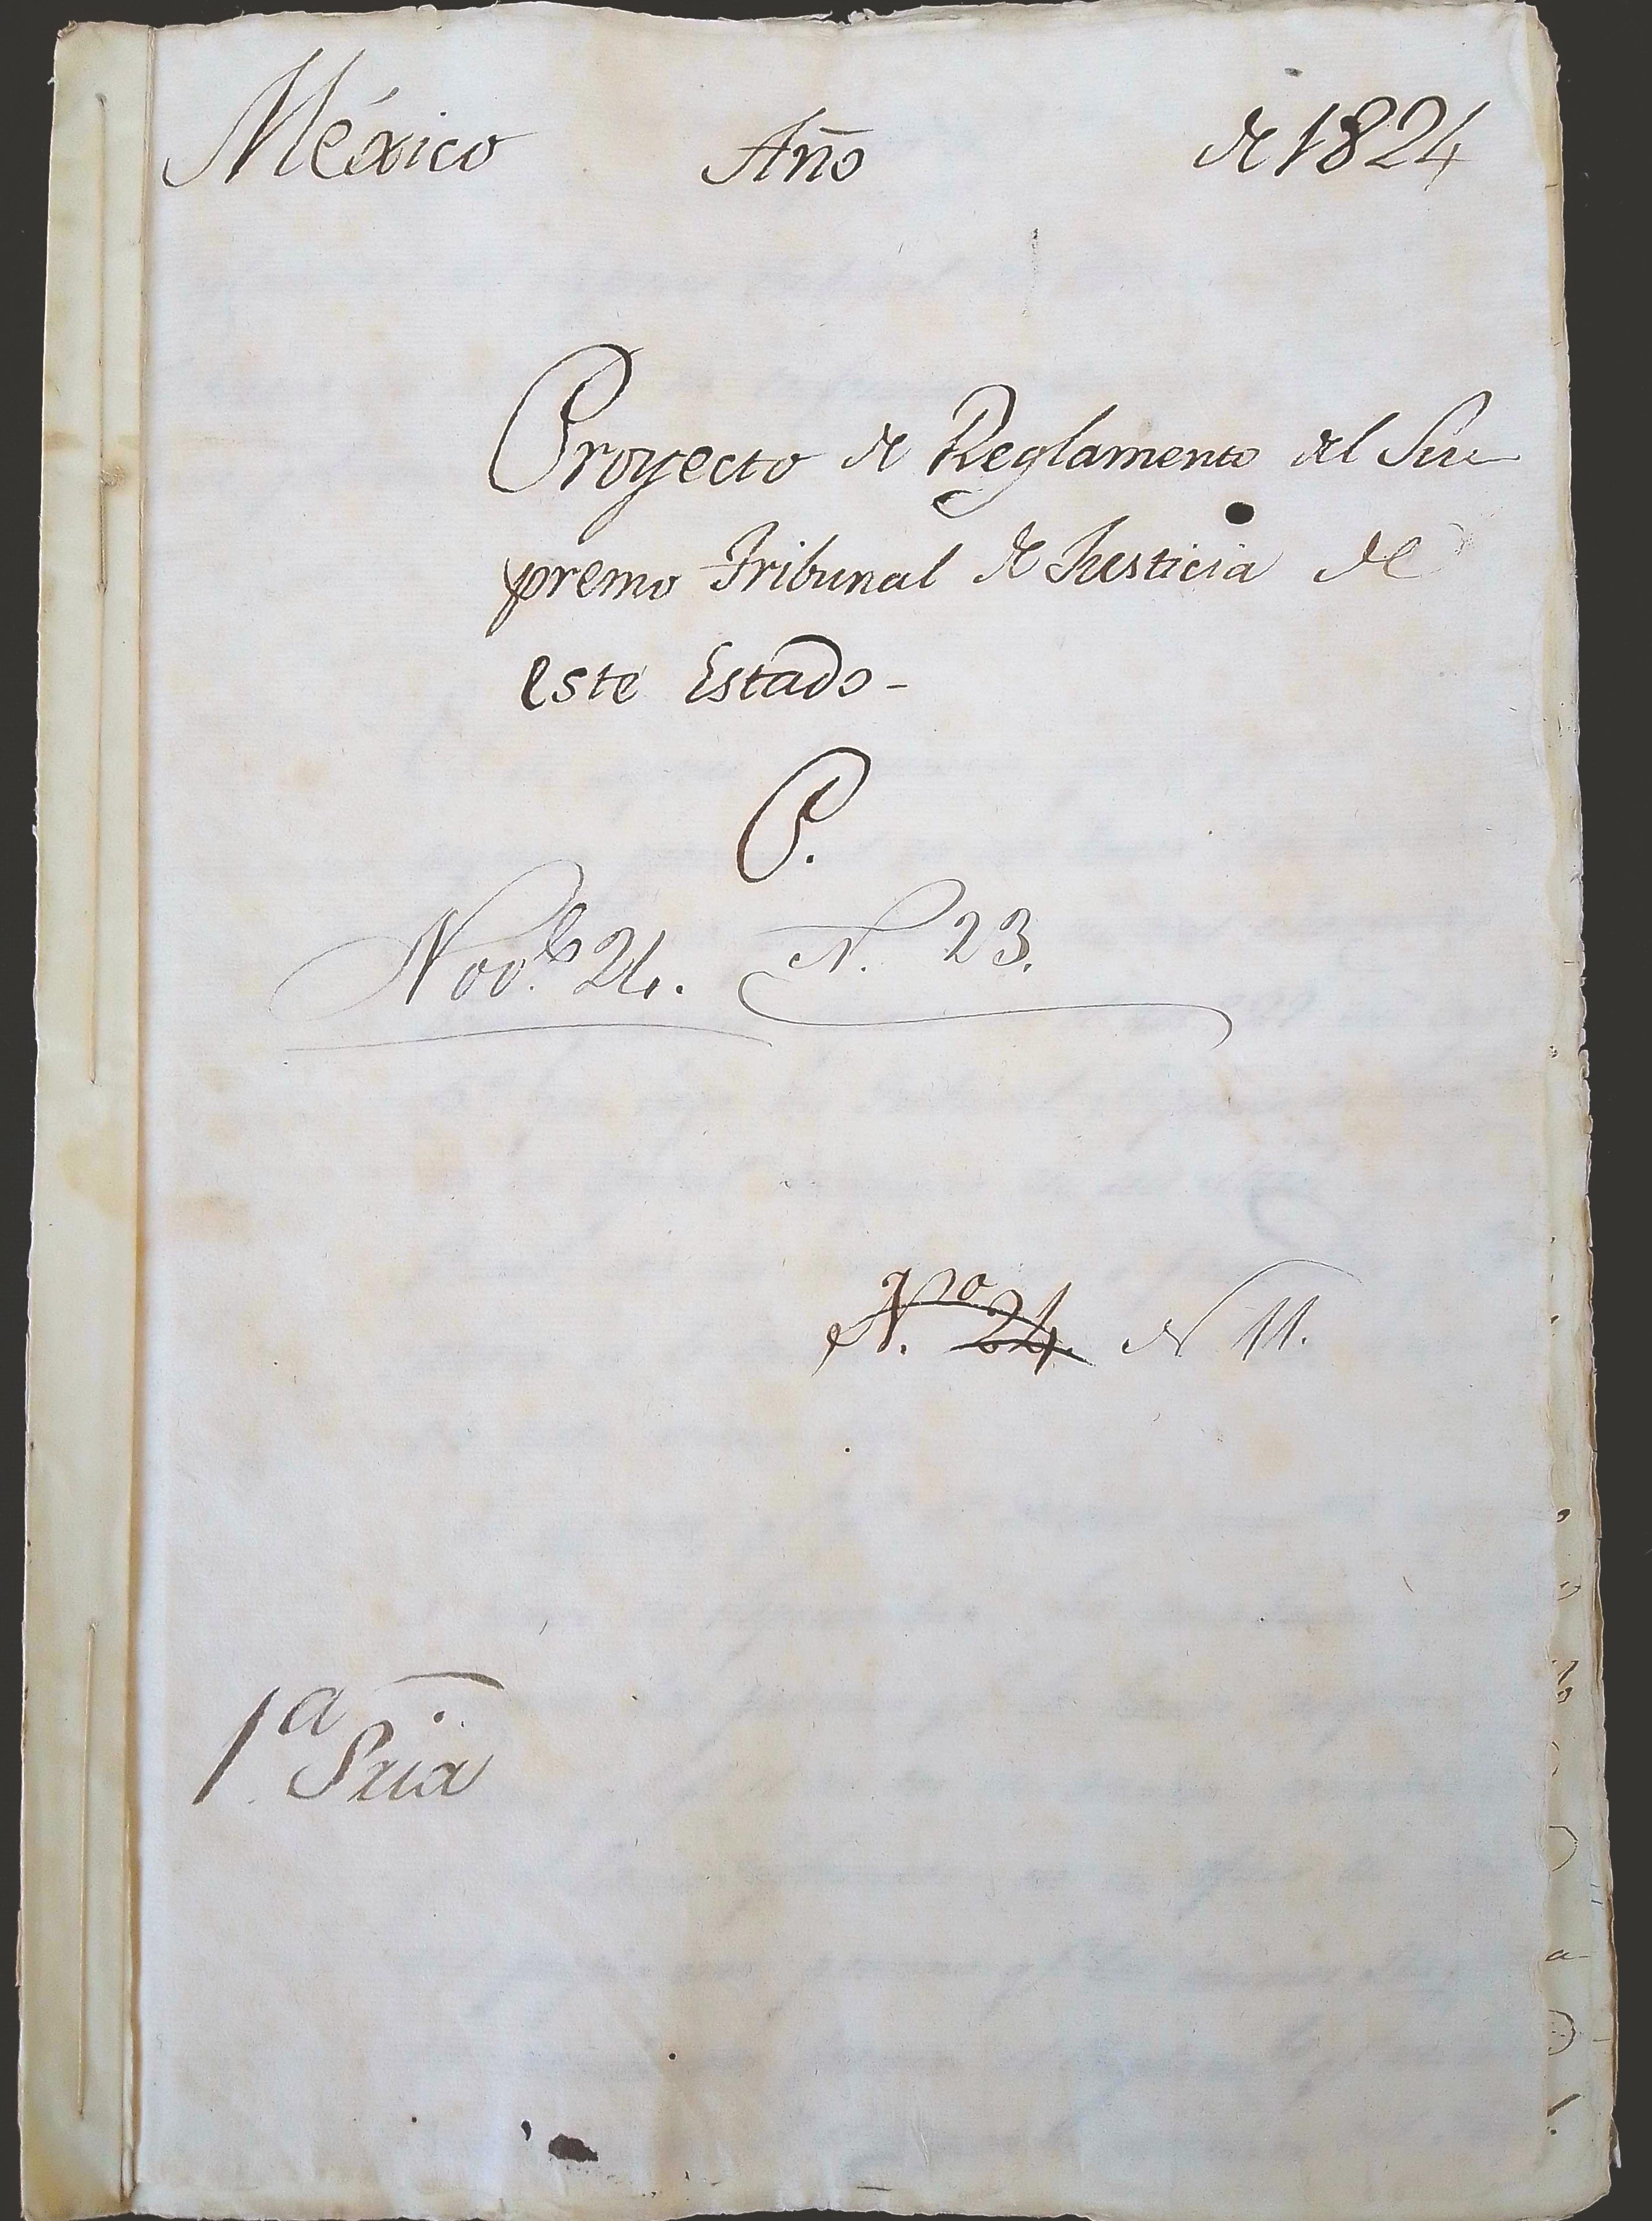 México Año de 1824
Proyecto de Reglamento del Su
premo Tribunal de Justicia de
este Estado-
P.
Nov.e 24. N. 23.
N.o 24. N 11.
1.a Sria